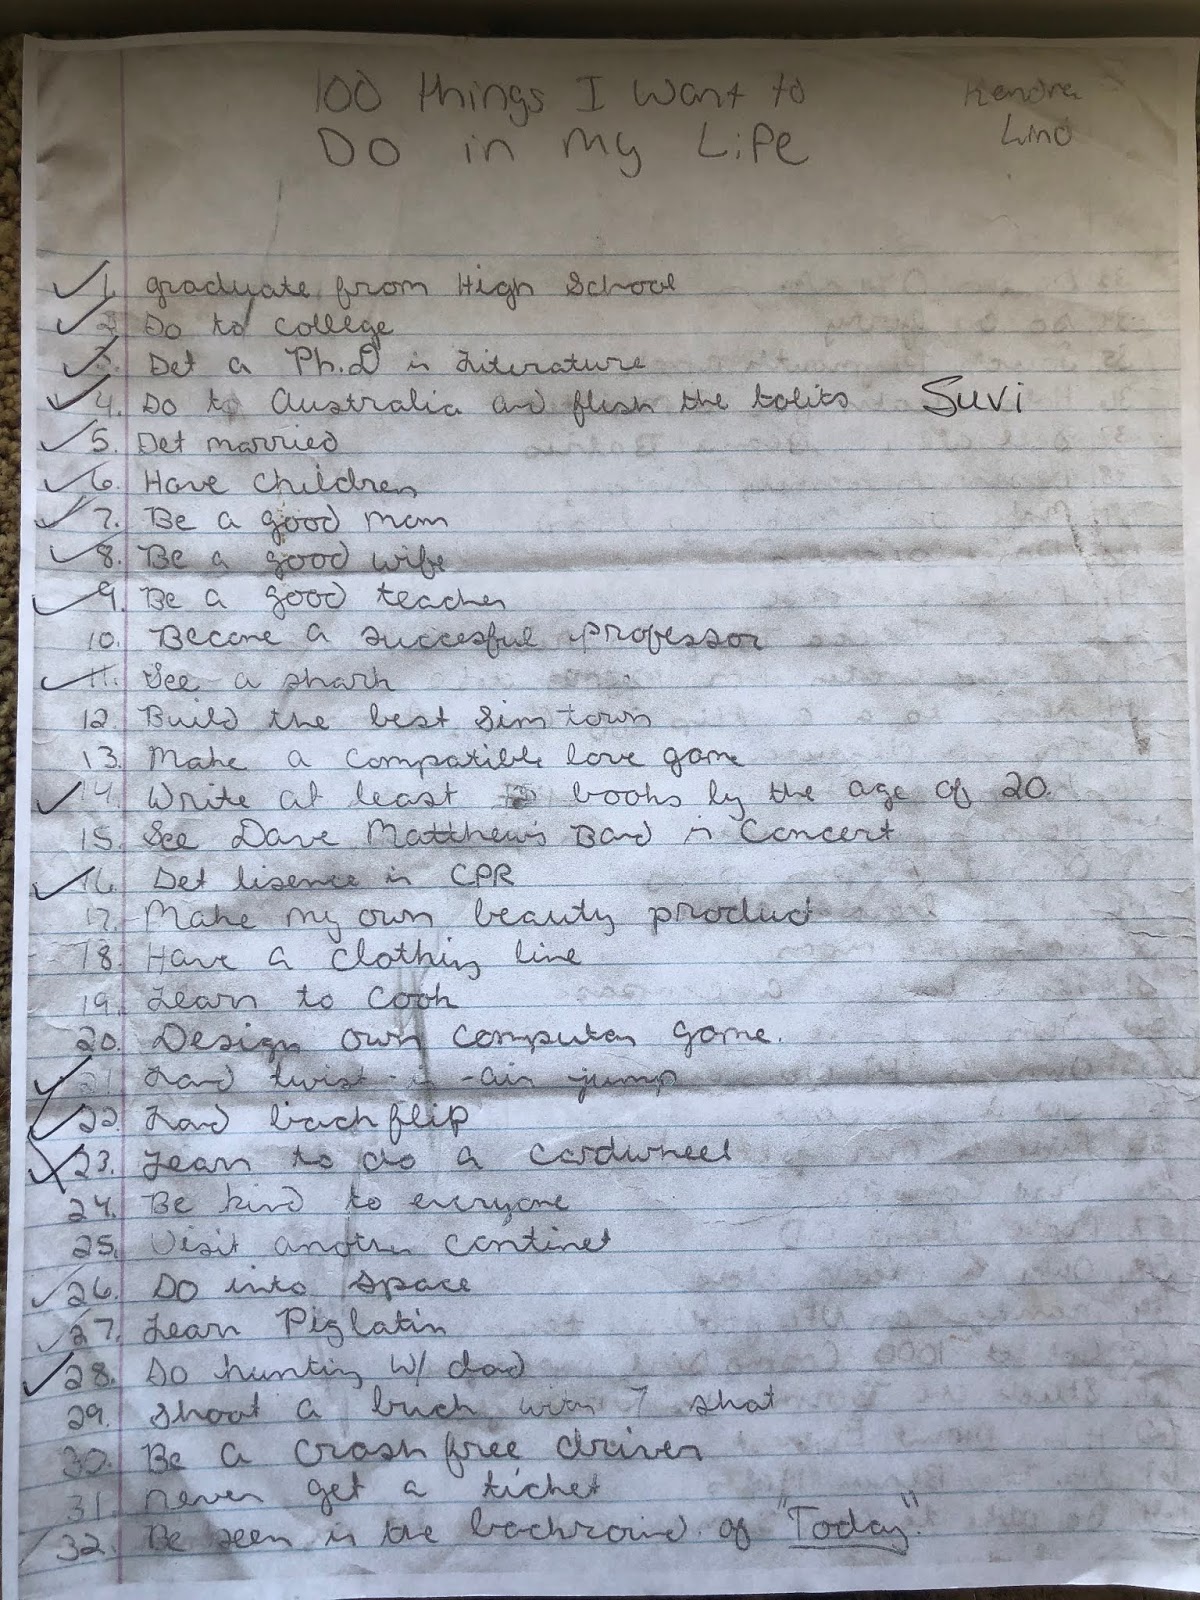 100 things I want to
Do in my Life
Kendra
Lind
1. graduate from High School
2. Go to college
3. Get a Ph.D in Literature
4. Go to Australia and flush the tolits Suvi
5. Get married
6. Have children
7. Be a good mom
8. Be a good wife
9. Be a good teacher
10. Become a succesful professor
11. See a shark
12. Build the best Sim town
13. Make a compatible love game
14. Write at least books by the age of 20.
15. See Dave Matthews Band in Concert
16. Get lisence in CPR
17. Make my own beauty product
18. Have a clothing line
19. Learn to cook
20. Design own computer game.
21. Land twist-in-air jump
22. Land backflip
23. Learn to do a cardwheel
24. Be kind to everyone
25. Visit another continet
26. Go into space
27. Learn Piglatin
28. Go hunting w/ dad
29. Shoot a buck with 1 shot
30. Be a crash free driver
31. never get a ticket
32. Be seen in the backround of "Today"